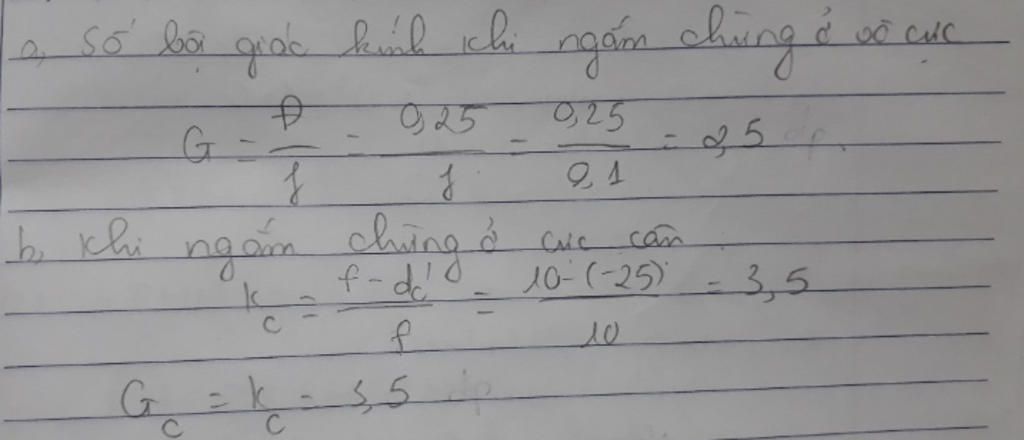 a, Số bội giác kính khi ngắm chừng ở vô cực
G = Đ/f = 0,25/f = 0,25/0,1 = 2,5
b, Khi ngắm chừng ở cực cận
k_c = f - d_c'/f = 10 - (-25)/10 = 3,5
G_c = k_c = 3,5